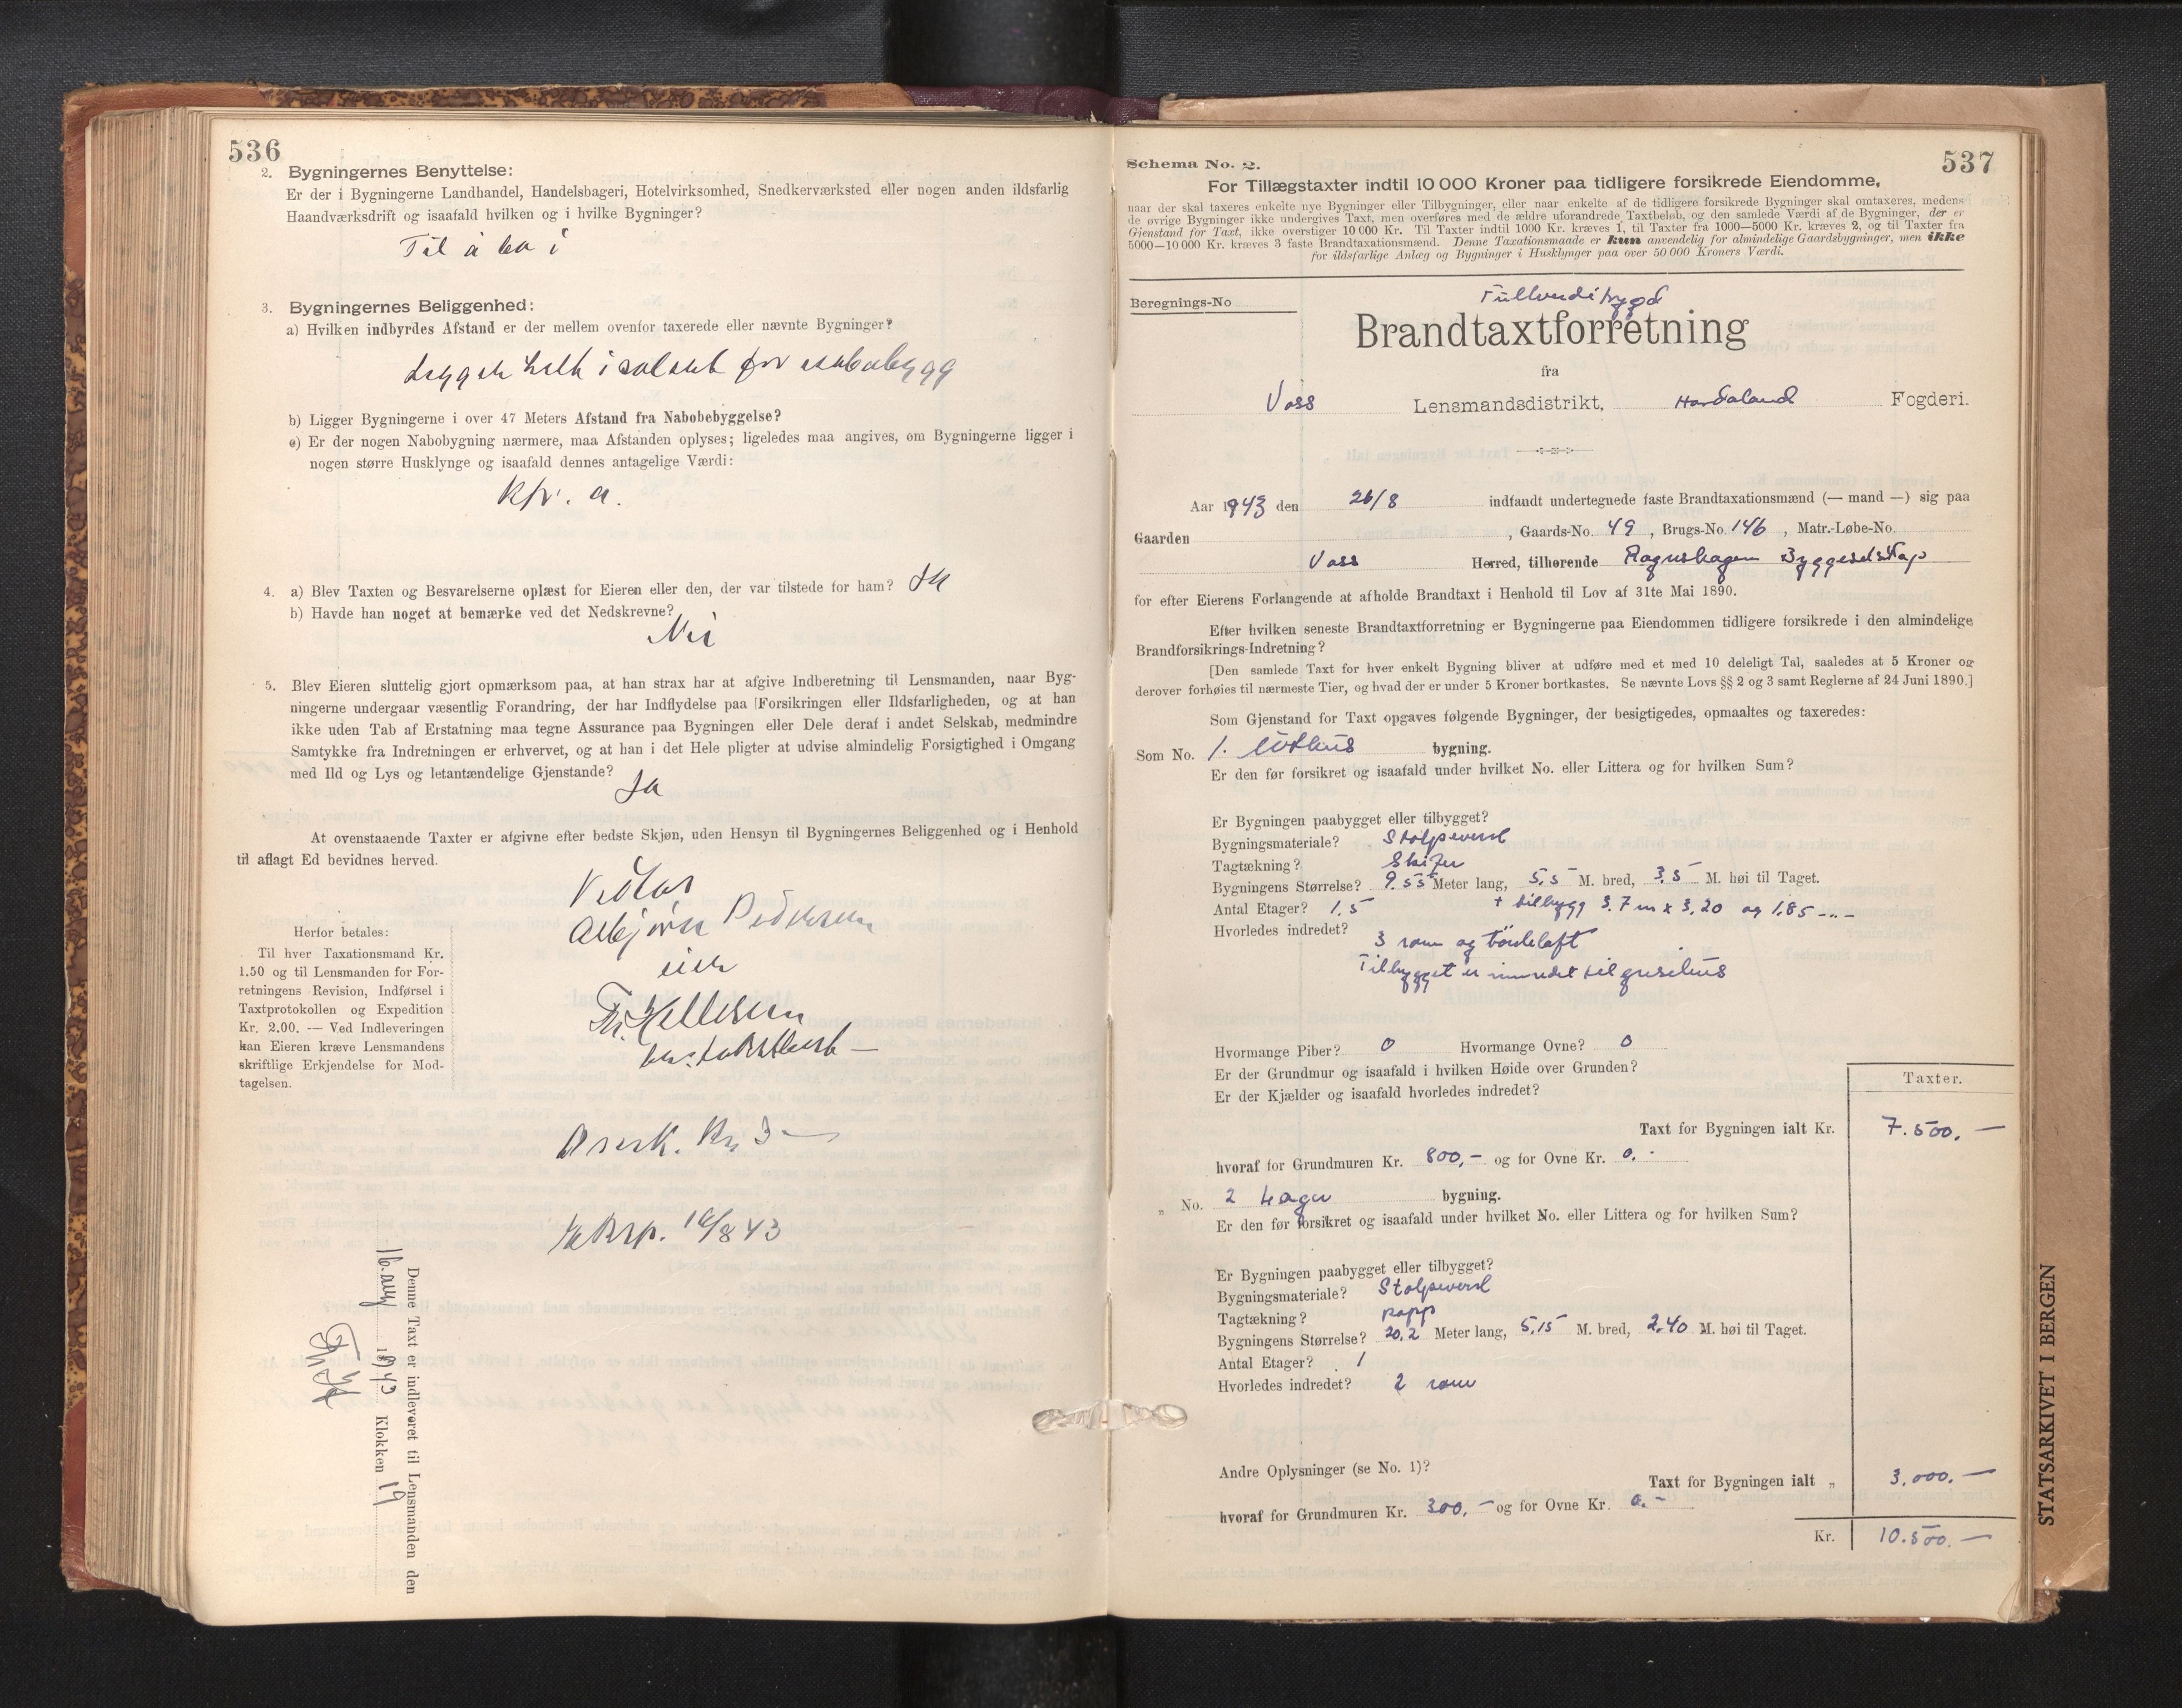 536
2. Bygningernes Benyttelse:
Er der i Bygningerne Landhandel, Handelsbageri, Hotelvirksomhed, Snedkerværksted eller nogen anden ildsfarlig
Haandværksdrift og isaafald hvilken og i hvilke Bygninger?
Til å bo i
3. Bygningernes Beliggenhed:
a) Hvilken indbyrdes Afstand er der mellem ovenfor taxerede eller nævnte Bygninger?
heilt isolert for nabobygg
b) Ligger Bygningerne i over 47 Meters Afstand fra Nabobebyggelse?
c) Er der nogen Nabobygning nærmere, maa Afstanden oplyses; ligeledes maa angives, om Bygningerne ligger i
nogen større Husklynge og isaafald dennes antagelige Værdi:
Kfr. a.
4. a) Blev Taxten og Besvarelserne oplæst for Eieren eller den, der var tilstede for ham? Ja
b) Havde han noget at bemærke ved det Nedskrevne?
Nei
5. Blev Eieren sluttelig gjort opmærksom paa, at han strax har at afgive Indberetning til Lensmanden, naar Byg-
ningerne undergaar væsentlig Forandring, der har Indflydelse paa Forsikringen eller Ildsfarligheden, og at han
ikke uden Tab af Erstatning maa tegne Assurance paa Bygningen eller Dele deraf i andet Selskab, medmindre
Samtykke fra Indretningen er erhvervet, og at han i det Hele pligter at udvise almindelig Forsigtighed i Omgang
med Ild og Lys og letantændelige Gjenstande?
Ja
At ovenstaaende Taxter er afgivne efter bedste Skjøn, uden Hensyn til Bygningernes Beliggenhed og i Henhold
til aflagt Ed bevidnes herved.
Pedersen
Herfor betales:
Til hver Taxationsmand Kr.
1.50 og til Lensmanden for For-
retningens Revision, Indførsel i
Taxtprotokollen og Expedition
Kr. 2.00. — Ved Indleveringen
kan Eieren kræve Lensmandens
skriftlige Erkjendelse for Mod-
tagelsen.
Denne Taxt er indleveret til Lensmanden den
16. aug 1943 Klokken 19
537
Schema No. 2.
For Tillægstaxter indtil 10 000 Kroner paa tidligere forsikrede Eiendomme,
naar der skal taxeres enkelte nye Bygninger eller Tilbygninger, eller naar enkelte af de tidligere forsikrede Bygninger skal omtaxeres, medens
de øvrige Bygninger ikke undergives Taxt, men overføres med de ældre uforandrede Taxtbeløb, og den samlede Værdi af de Bygninger, der er
Gjenstand for Taxt, ikke overstiger 10 000 Kr. Til Taxter indtil 1000 Kr. kræves 1, til Taxter fra 1000—5000 Kr. kræves 2, og til Taxter fra
5000—10 000 Kr. kræves 3 faste Brandtaxationsmænd. Denne Taxationsmaade er kun anvendelig for almindelige Gaardsbygninger, men ikke
for ildsfarlige Anlæg og Bygninger i Husklynger paa over 50 000 Kroners Værdi.
Beregnings-No
Fullverdibygd
Brandtaxtforretning
fra
Voss Lensmandsdistrikt, Hordaland Fogderi.
Aar 1943 den 26/8 indfandt undertegnede faste Brandtaxationsmænd (— mand —) sig paa
Gaarden , Gaards-No. 49, Brugs-No. 146, Matr.-Løbe-No.
Voss Herred, tilhørende Byggeselskap
for efter Eierens Forlangende at afholde Brandtaxt i Henhold til Lov af 31te Mai 1890.
Efter hvilken seneste Brandtaxtforretning er Bygningerne paa Eiendommen tidligere forsikrede i den almindelige
Brandforsikrings-Indretning?
[Den samlede Taxt for hver enkelt Bygning bliver at udføre med et med 10 deleligt Tal, saaledes at 5 Kroner og
derover forhøies til nærmeste Tier, og hvad der er under 5 Kroner bortkastes. Se nævnte Lovs §§ 2 og 3 samt Reglerne af 24 Juni 1890.]
Som Gjenstand for Taxt opgaves følgende Bygninger, der besigtigedes, opmaaltes og taxeredes:
Som No. 1. bygning.
Er den før forsikret og isaafald under hvilket No. eller Littera og for hvilken Sum?
Er Bygningen paabygget eller tilbygget?
Bygningsmateriale? Stolpeverk
Tagtækning? Skifer
Bygningens Størrelse? 9.55 Meter lang, 5,5 M. bred, 3,5 M. høi til Taget.
Antal Etager? 1,5 + tilbygg 3.7 m x 3,20 og 1,85 -„-
Hvorledes indredet?
3 rom og tørkeloft
Tilbygget er innredet til grisehus
Hvormange Piber? 0 Hvormange Ovne? 0
Er der Grundmur og isaafald i hvilken Høide over Grunden?
Er der Kjælder og isaafald hvorledes indredet?
Taxter.
Taxt for Bygningen ialt Kr. 7.500.—
hvoraf for Grundmuren Kr. 800,- og for Ovne Kr. 0.-
„ No. 2 Lager bygning.
Er den før forsikret og isaafald under hvilket No. eller Littera og for hvilken Sum?
Er Bygningen paabygget eller tilbygget?
Bygningsmateriale? Stolpeverk
Tagtækning? papp
Bygningens Størrelse? 20,2 Meter lang, 5,15 M. bred, 2,40 M. høi til Taget.
Antal Etager? 1
Hvorledes indredet? 2 rom
Andre Oplysninger (se No. 1)?
Taxt for Bygningen ialt „ 3.000.—
hvoraf for Grundmuren Kr. 300,- og for Ovne Kr. 0.-
Kr. 10.500.—
STATSARKIVET I BERGEN